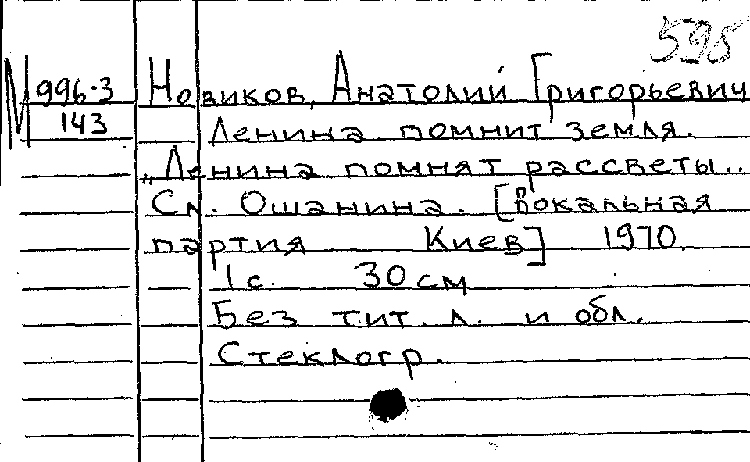 595
М 996-3
143
Новиков, Анатолий Григорьевич
Ленина помнит земля.
„Ленина помнят рассветы..
Сл. Ошанина. [Вокальная
партия Киев] 1970.
1 с. 30 см
Без тит. л. и обл.
Стеклогр.